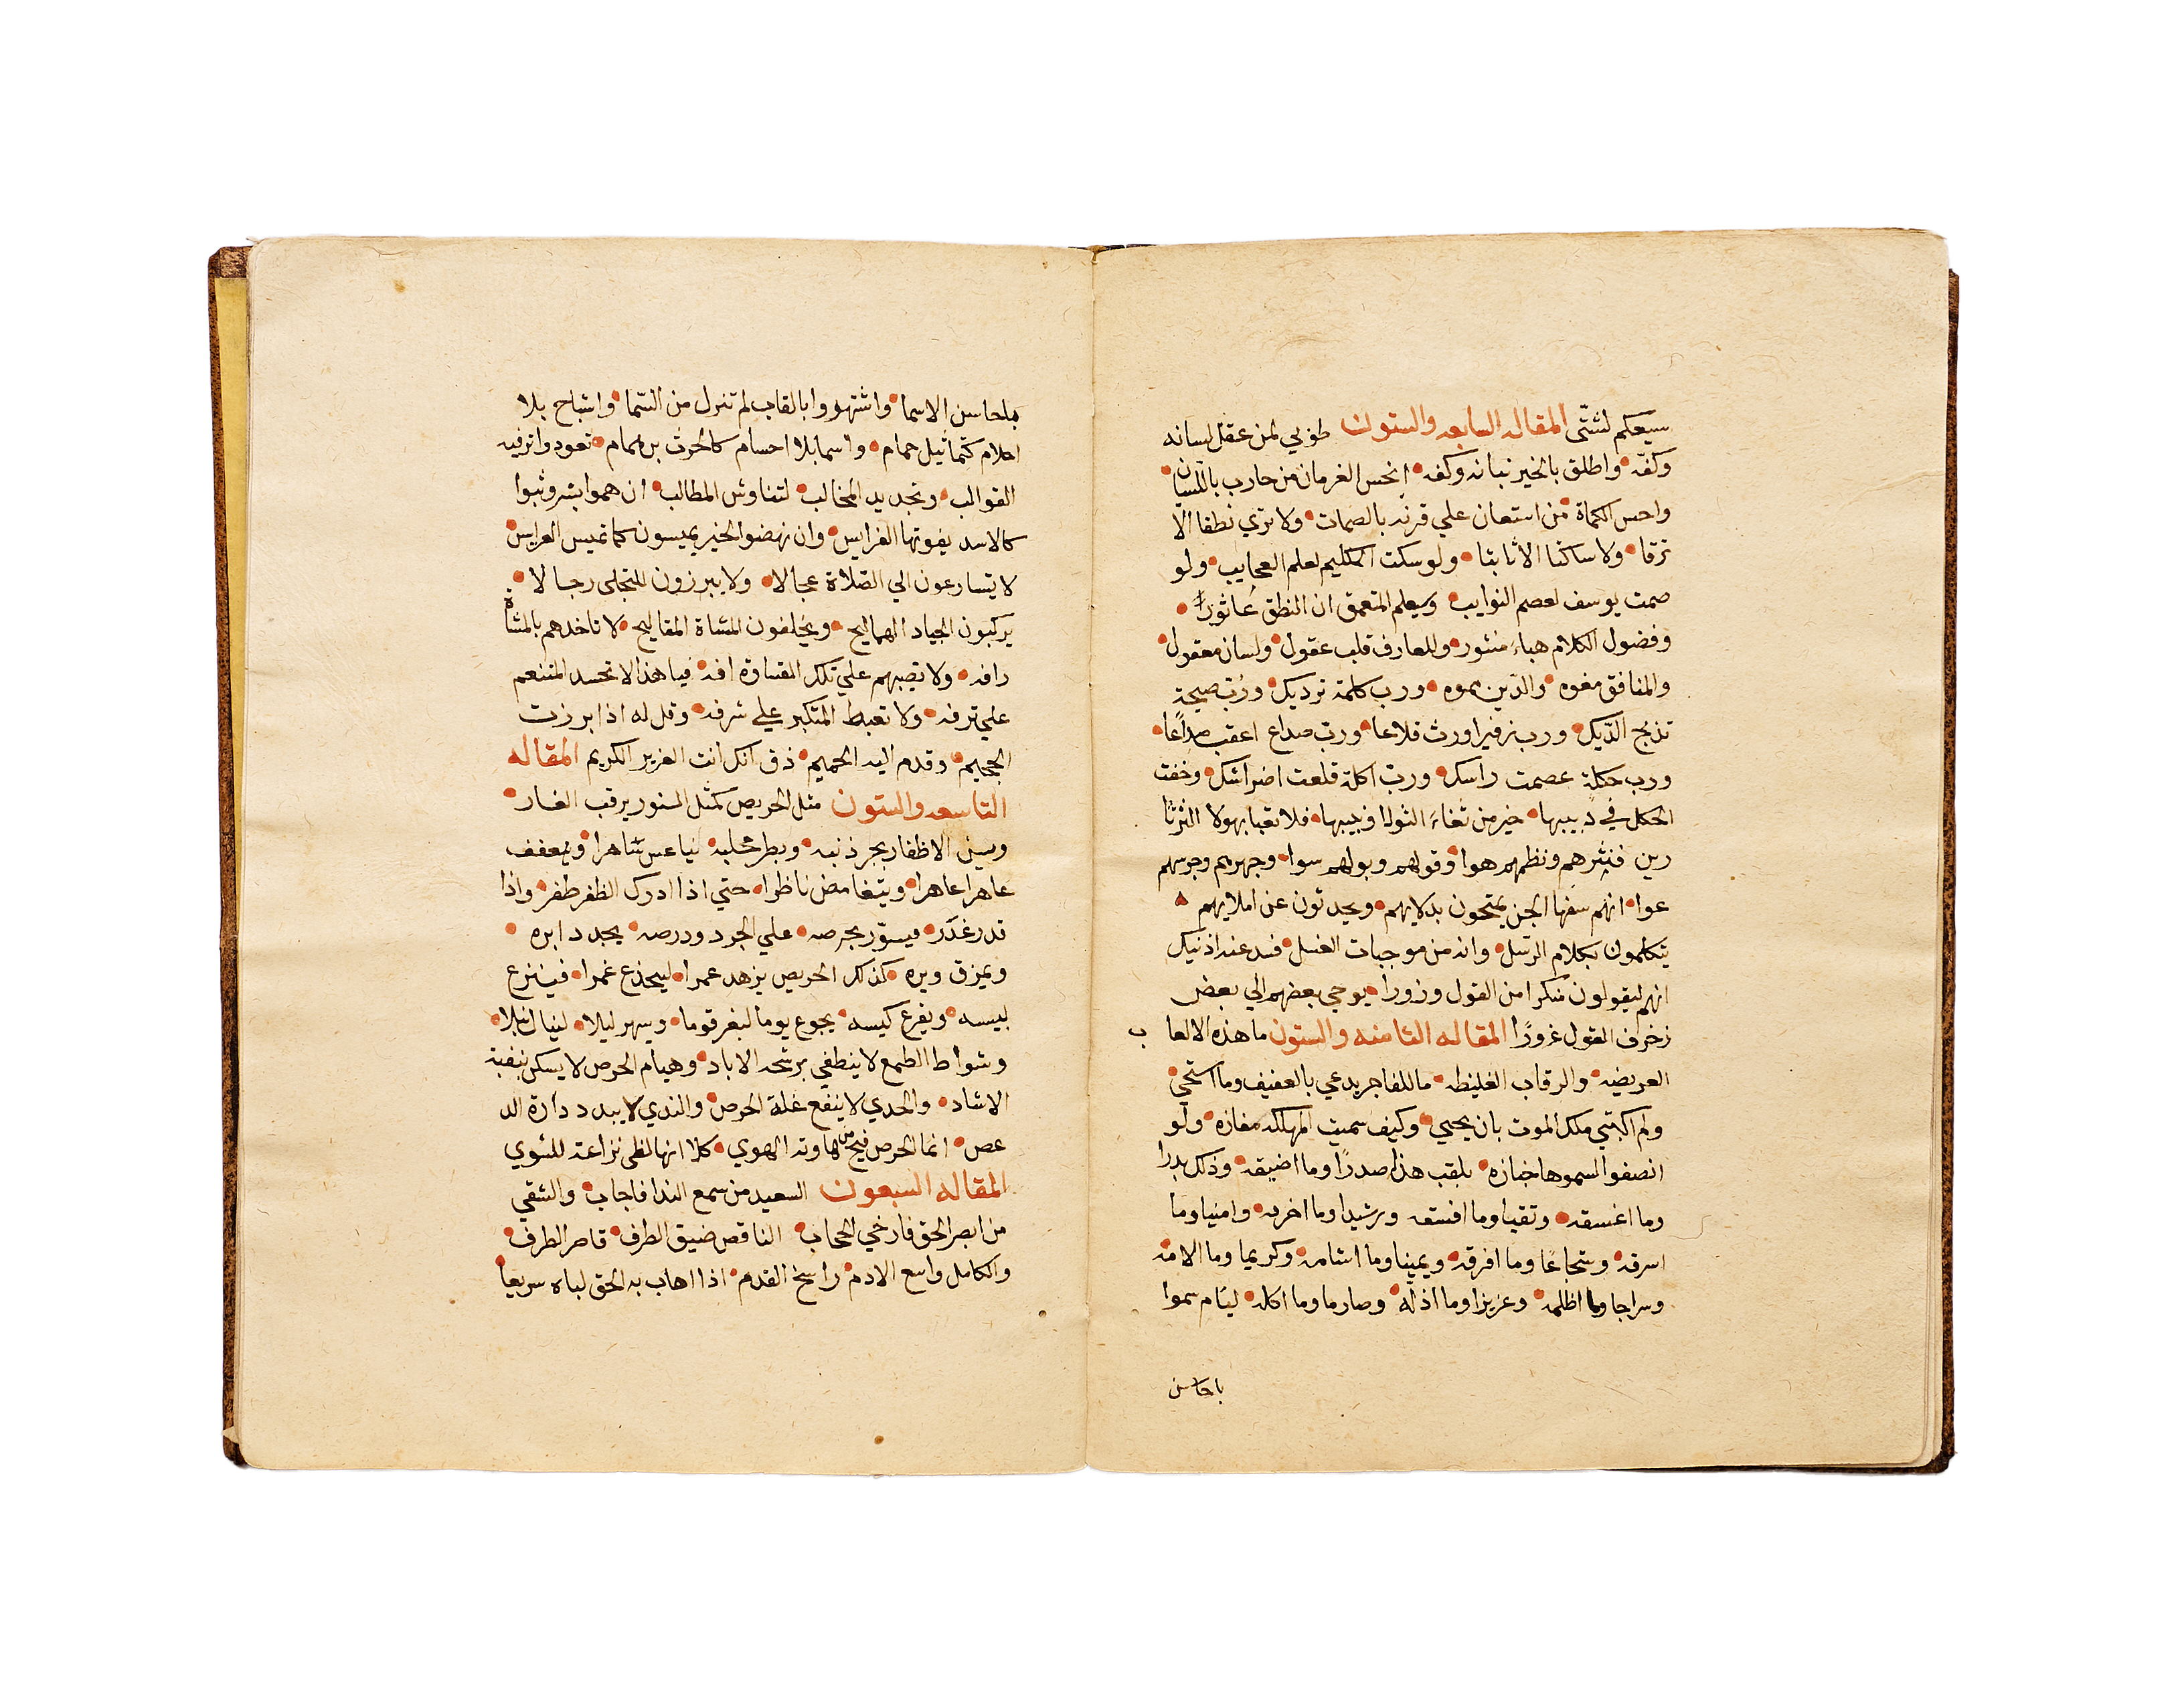 سعيكم لشتّى المقاله السابعه والستون طوبي لمن عقل لسانه
وكفّه واطلق بالخير نبانه وكفه انحس الغرمان من حارب باللّسان
واحس الكماة من استعان علي قرنه بالصمات ولا تري نطقا الّا
نزقا ولا ساكتا الا ثابتا ولو سكت الكليم لعلم العجايب ولو
صمت يوسف لعصم النوايب وسيعلم المتعمق ان النطق عاثور
وفضول الكلام هباء منثور وللعارف قلب عقول ولسان معقول
والمنافق مفوه والدّين مموه ورب كلمة ترديك وربّ صيحة
تذبح الدّيك ورب زفير اورث قلاعا وربّ صداع اعقب صداعًا
ورب حكلة عصمت راسك وربّ اكلة قلعت اضراسك وخفت
الحكل في دبيبها خير من ثغاء الثولا ونبيبها فلا تعبا بهولا الثرثا
رين فنثرهم ونظمهم هوا وقولهم وبولهم سوا وجهرهم وجرسهم
عوا انهم سفها الجن يمتحون بدلايهم ويحدثون عن املايهم
يتكلمون بكلام الرسل وانه من موجبات الغسل فسد عنه اذنيك
انهم ليقولون منكرا من القول وزورا يوحي بعضهم الي بعض
زخرف القول غرورًا المقاله الثامنه والستون ما هذه الالعا ب
العريضه والرقاب الغليظه ما للفاجر يدعي بالعفيف وما استحي
ولم اكتني ملك الموت بان يحيي وكيف سميت المهلكه مفازه ولو
انصفوا لسموها جنازه يلقب هذا صدرًا وما اضيقه وذلك بدرا
وما اغسقه وتقيا وما افسقه ورشيدا وما اخرقه وامنيا وما
اسرقه وشجاعًا وما افرقه ويمينا وما اشامه وكريما وما الامه
وسراجا وما اظلمه وعزيزا وما اذلّه وصارما وما اكله ليام سموا
باحاسن
باحاسن الاسما واشتهروا بالقاب لم تنزل من السّما واشباح بلا
احلام كتماثيل حمام واسما بلا اجسام كالحرث بن همام تعودوا ترفيه
القوالب وتحديد المخالب لتناوش المطالب ان هموا بشر وثبوا
كالاسد يفوتها الفرايس وان نهضوا لخير يميسون كما تميس العرايس
لا يتسارعون الي الصّلاة عجالا ولا يبرزون للتجلى رجالا
يركبون الجياد الهماليج ويخلفون المشاة المفاليج لا تاخدهم بالمشاة
رافه ولا تصيبهم علي تلك القساوة افه فيا هذا لا تحسد المتنعم
علي ترفه ولا تغبط المتكبر علي شرفه وقل له اذا برزت
الجحيم وقدم اليه الحميم ذق انك انت العزيز الكريم المقاله
التاسعه والستون مثل الحريص كمثل السنور يرقب الفار
وسنّ الاظفار يجر ذنبه ويطر مخلبه يتاعس ساهرا ويتعفف
عاهرا عاهرا ويتغامض ناظرا حتي اذا ادرك الظفر طفر واذا
قدر غدر فيسوّر بحرصه علي الجرد ودرصه يحدد ابره
ويمزق وبره كذلك الحريص يزهد عمرا ليخدع غمرا فينزع
لبيسه ويفرغ كيسه يجوع يوما ليغر قوما ويسهر ليلا لينال نيلا
وشواط الطمع لا ينطفي برشحه الاباد وهيام الحرص لا يسكن بنفبة
الاشاد والجدي لا ينقع غلة الحرص والندي لا يبدد دارة الد
عص انما الحرص فيح من هاوته الهوي كلا انها لظى نزاعة للشوي
المقاله السبعون السعيد من سمع الندا فاجاب والشقي
من ابصر الحق فارخي الحجاب الناقص ضيق الطرف قاصر الطرف
والكامل واسع الادم راسخ القدم اذا اهاب به الحق لباه سريعا